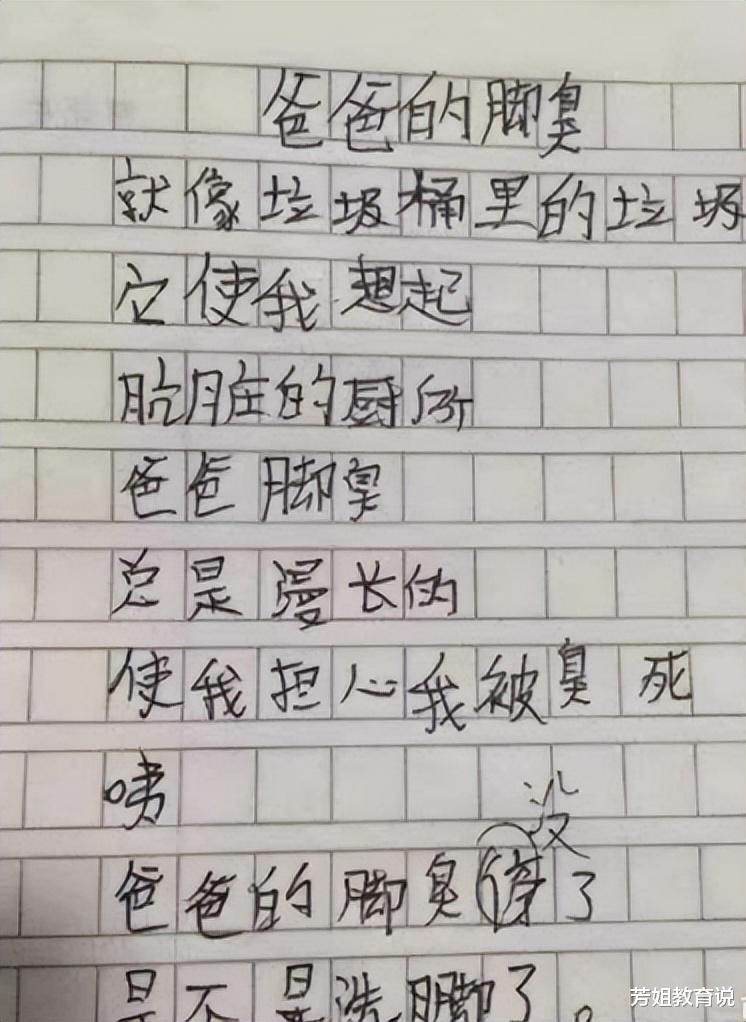 爸爸的脚臭
就像垃圾桶里的垃圾
它使我想起
肮脏的厨所
爸爸脚臭
总是漫长的
使我担心我被臭死
咦
没
爸爸的脚臭停了
是不是洗脚了。
芳姐教育说